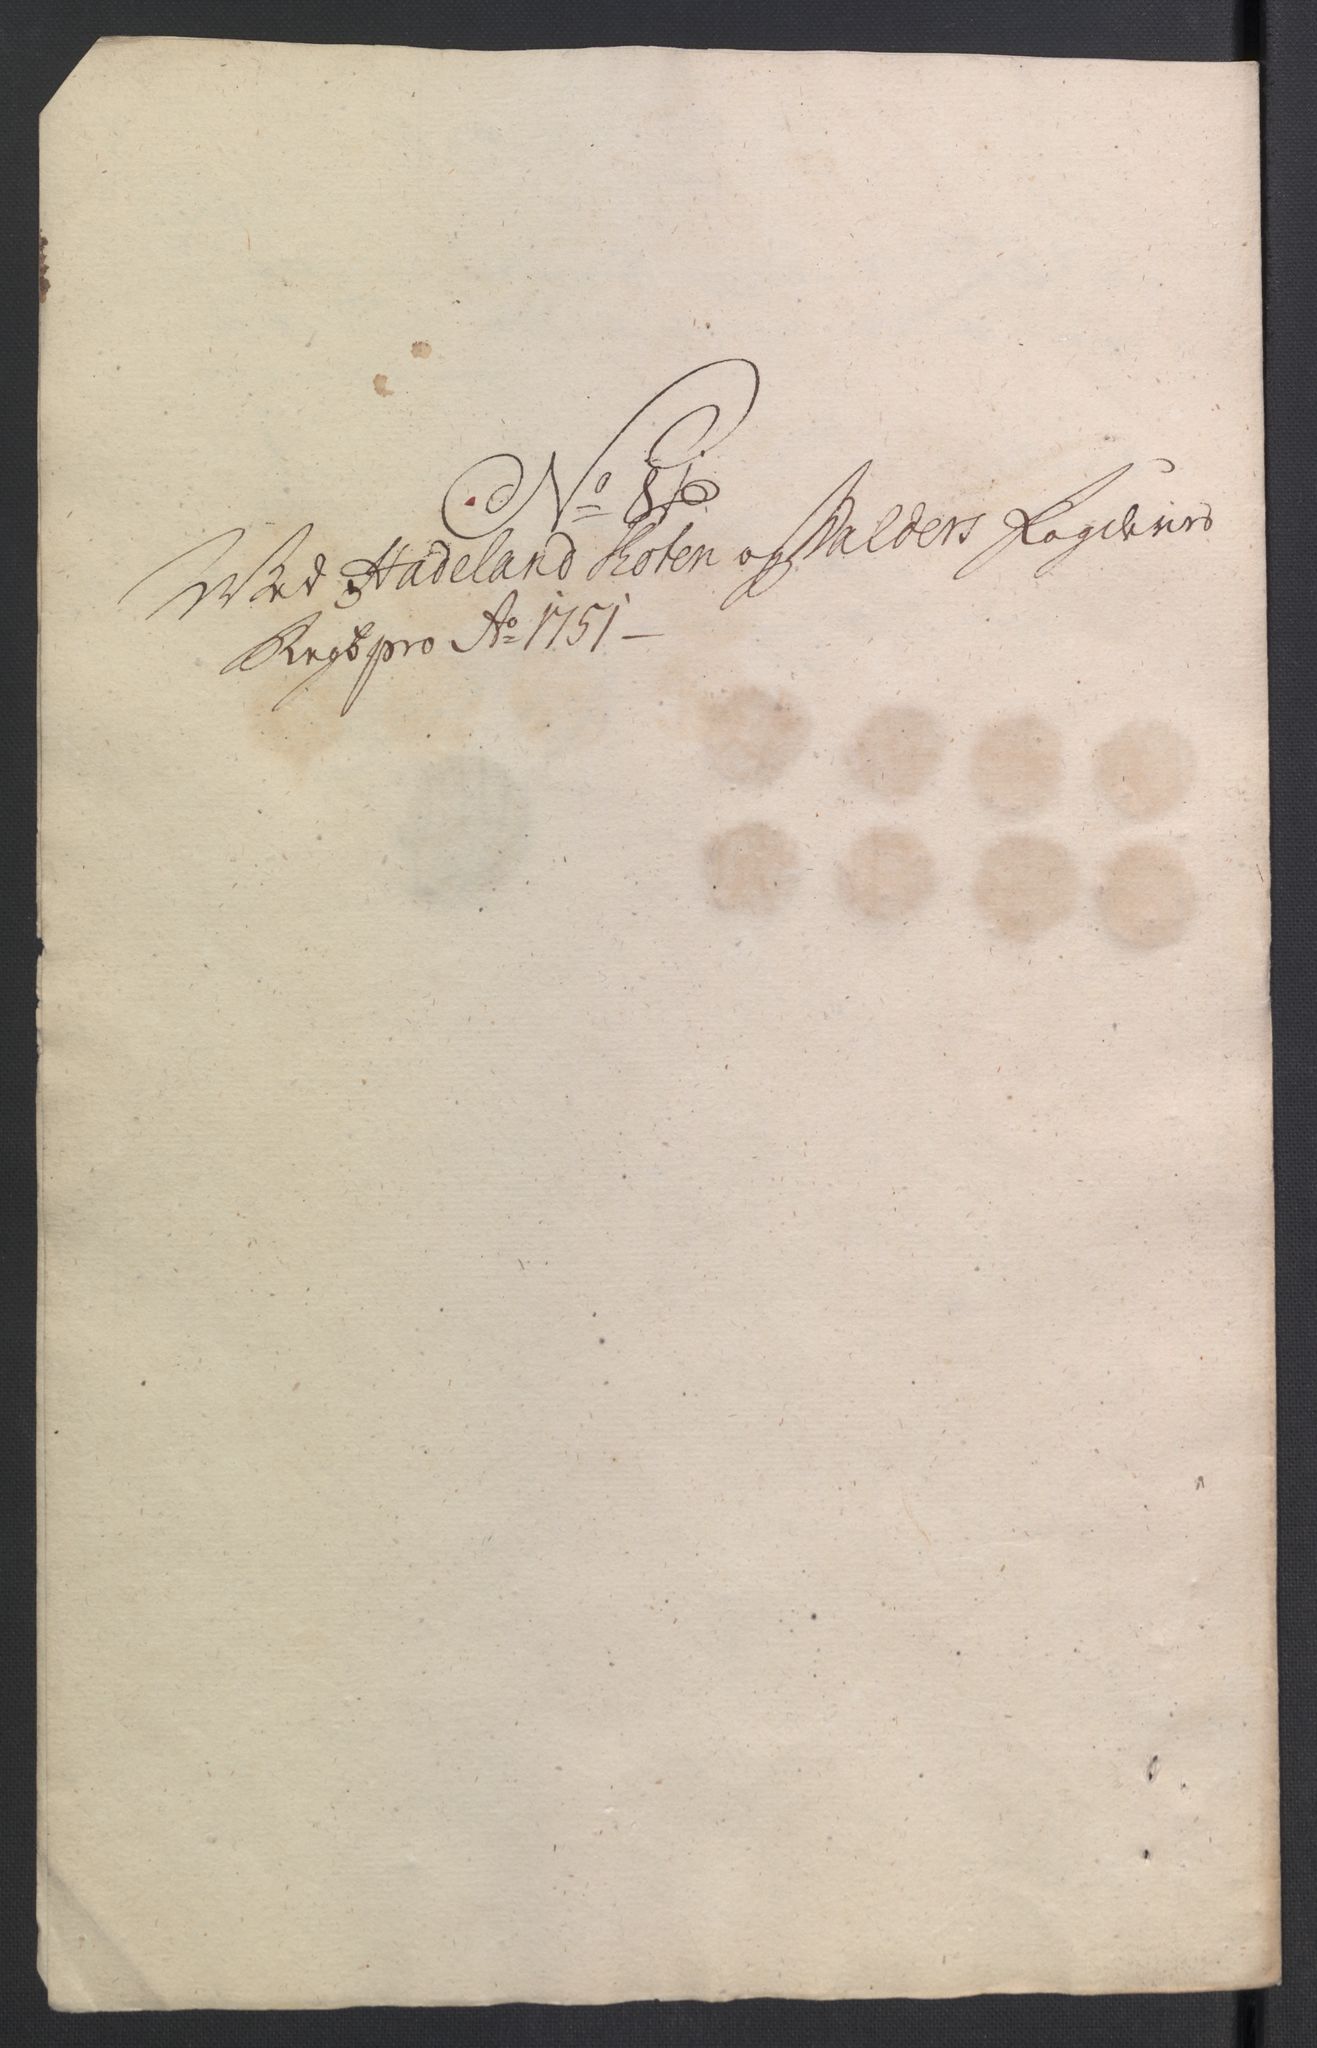 No 8
Wed Hadeland Toten og Valders Fogderies
Regsk pro Ao 1751 –